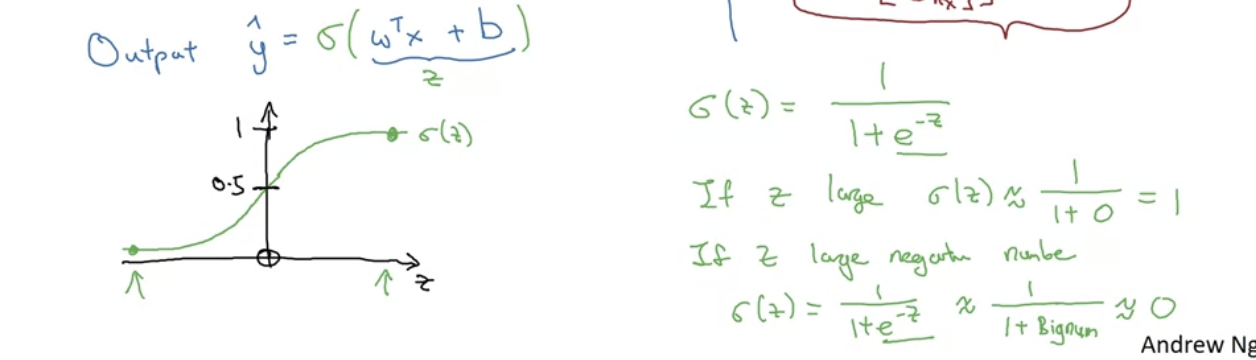 Output ŷ = σ(wᵀx + b)
z
1
σ(z)
0.5
z
σ(z) = 1 / (1 + e^(-z))
If z large σ(z) ≈ 1 / (1 + 0) = 1
If z large negative numbe
σ(z) = 1 / (1 + e^(-z)) ≈ 1 / (1 + Bignum) ≈ 0
Andrew Ng